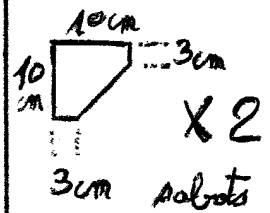 10cm
3cm
10
cm
X 2
3cm
sabots